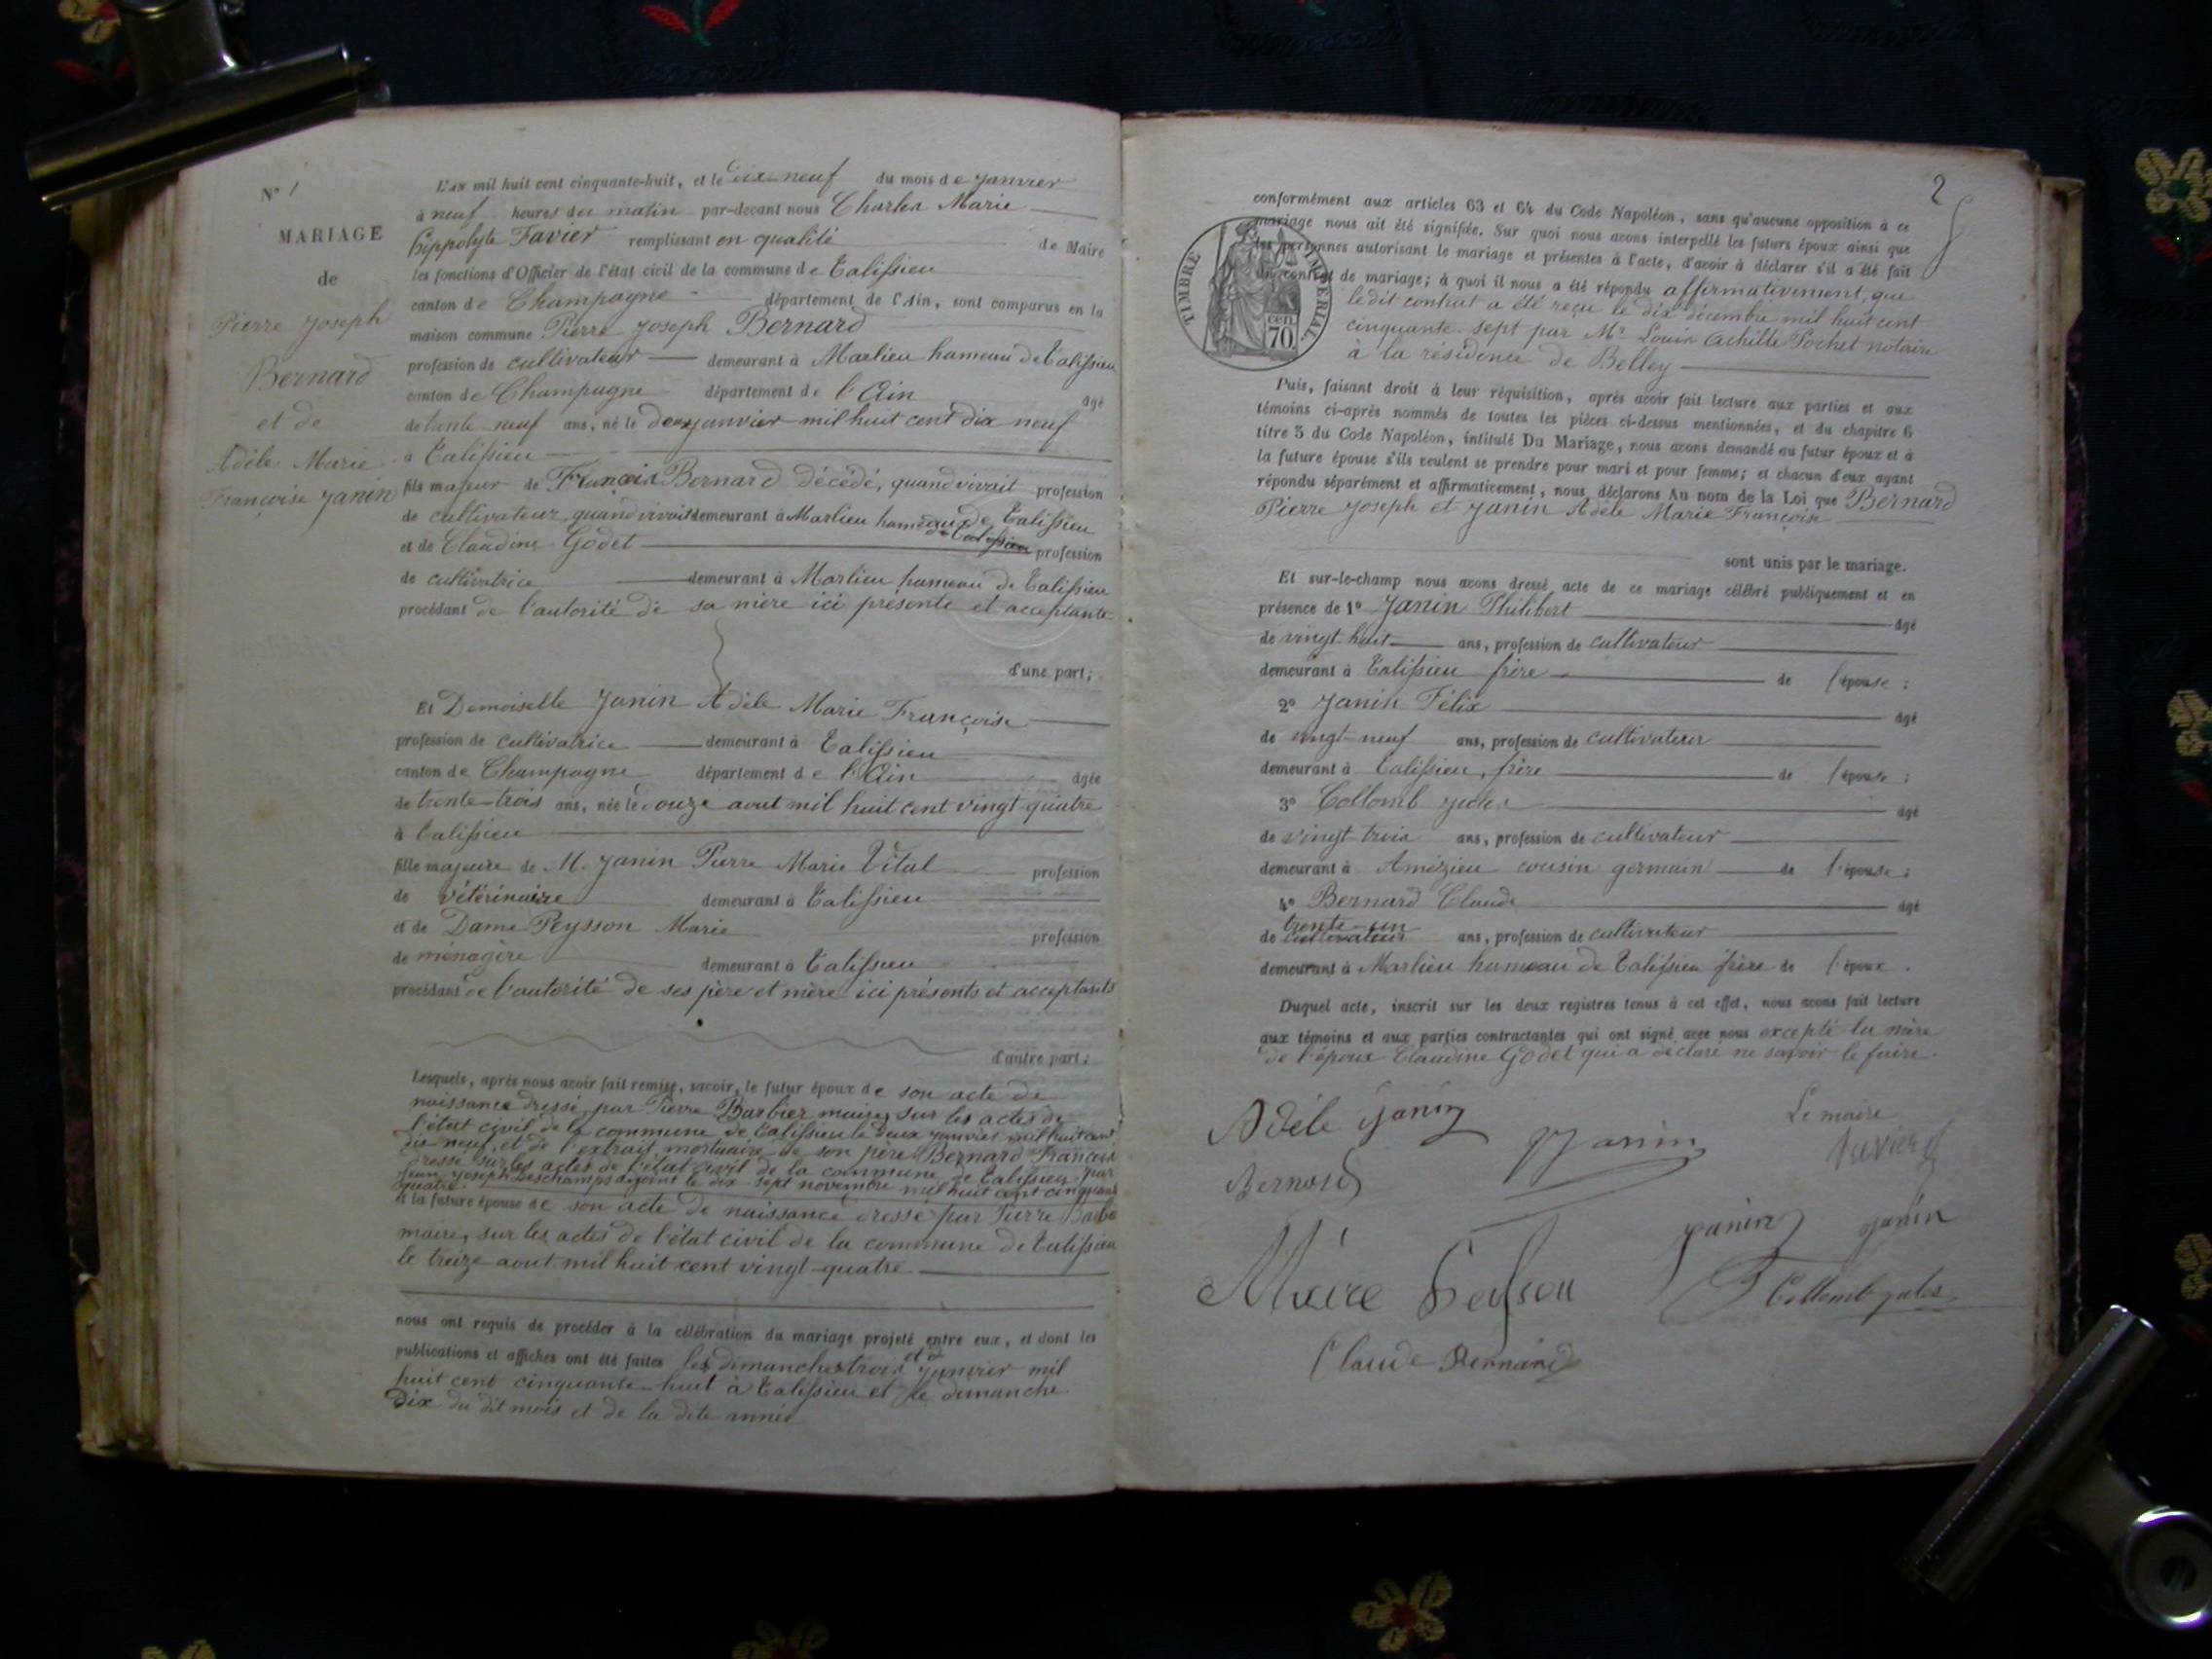 N° 1
MARIAGE
de
Pierre Joseph
Bernard
et de
Adèle Marie
Françoise Janin
L'AN mil huit cent cinquante-huit, et le dix-neuf du mois de Janvier
à neuf heures du matin par-devant nous Charles Marie
hippolyte Favier remplissant en qualité de Maire
les fonctions d'Officier de l'état civil de la commune de Talissieu
canton de Champagne département de l'Ain, sont comparus en la
maison commune Pierre Joseph Bernard
profession de cultivateur demeurant à Marlieu hameau de Talissieu
canton de Champagne département de l'Ain âgé
de trente-neuf ans, né le deux janvier mil huit cent dix neuf
à Talissieu
fils majeur de François Bernard décédé, quand vivait profession
de cultivateur quand vivait demeurant à Marlieu hameau de Talissieu
et de Claudine Godet profession
de cultivatrice demeurant à Marlieu hameau de Talissieu
procédant de l'autorité de sa mère ici présente et acceptante
d'une part;
Et Demoiselle Janin Adèle Marie Françoise
profession de cultivatrice demeurant à Talissieu
canton de Champagne département de l'Ain âgée
de trente-trois ans, née le douze aout mil huit cent vingt quatre
à Talissieu
fille majeure de M. Janin Pierre Marie Vital profession
de vétérinaire demeurant à Talissieu
et de Dame Peysson Marie profession
de ménagère demeurant à Talissieu
procédant de l'autorité de ses père et mère ici présents et acceptants
d'autre part;
Lesquels, après nous avoir fait remise, savoir, le futur époux de son acte de
naissance dressé par Pierre Barbier maire, sur les actes de
l'état civil de la commune de Talissieu le deux janvier mil huit cent
dix neuf, et de l'extrait mortuaire de son père Bernard François
dressé sur les actes de l'état civil de la commune de Talissieu par
Jean Joseph Deschamps adjoint le dix-sept novembre mil huit cent cinquante
quatre
et la future épouse de son acte de naissance dressé par Pierre Barbier
maire, sur les actes de l'état civil de la commune de Talissieu
le treize aout mil huit cent vingt-quatre
nous ont requis de procéder à la célébration du mariage projeté entre eux, et dont les
publications et affiches ont été faites les dimanches trois et d janvier mil
huit cent cinquante-huit à Talissieu et le dimanche
Dix du dit mois et de la dite année
2
TIMBRE IMPERIAL
cen. 70.
conformément aux articles 63 et 64 du Code Napoléon, sans qu'aucune opposition à ce
mariage nous ait été signifiée. Sur quoi nous avons interpellé les futurs époux ainsi que
les personnes autorisant le mariage et présentes à l'acte, d'avoir à déclarer s'il a été fait
un contrat de mariage; à quoi il nous a été répondu affirmativement, que
ledit contrat a été reçu le dix décembre mil huit cent
cinquante-sept par Mr Louis Achille Pochet notaire
à la résidence de Belley
Puis, faisant droit à leur réquisition, après avoir fait lecture aux parties et aux
témoins ci-après nommés de toutes les pièces ci-dessus mentionnées, et du chapitre 6
titre 5 du Code Napoléon, intitulé Du Mariage, nous avons demandé au futur époux et à
la future épouse s'ils veulent se prendre pour mari et pour femme; et chacun d'eux ayant
répondu séparément et affirmativement, nous déclarons Au nom de la Loi que Bernard
Pierre Joseph et Janin Adèle Marie Françoise
sont unis par le mariage.
Et sur-le-champ nous avons dressé acte de ce mariage célébré publiquement et en
présence de 1° Janin Philibert âgé
de vingt huit ans, profession de cultivateur
demeurant à Talissieu frère de l'épouse;
2° Janin Félix âgé
de vingt-neuf ans, profession de cultivateur
demeurant à Talissieu, frère de l'épouse;
3° Collomb Jules âgé
de vingt trois ans, profession de cultivateur
demeurant à Amézieu cousin germain de l'épouse;
4° Bernard Claude âgé
trente-un
de cultivateur ans, profession de cultivateur
demeurant à Marlieu hameau de Talissieu frère de l'époux.
Duquel acte, inscrit sur les deux registres tenus à cet effet, nous avons fait lecture
aux témoins et aux parties contractantes qui ont signé avec nous excepté la mère
de l'époux Claudine Godet qui a déclaré ne savoir le faire.
Adèle Janin
Janin
Le maire
Favier
Bernard
Janin
Janin
Marie Peysson
Collomb jules
Claude Bernard